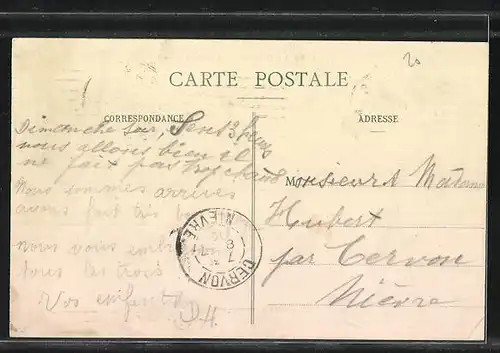 20
CARTE POSTALE
CORRESPONDANCE
ADRESSE
Dimanche soir, Sens 3 heures
nous allons bien il
ne fait pas trop chaud
Nous sommes arrivés
avons fait très
nous vous
tous les trois
Vos enfants
DH
Monsieur & Madame
Hubert
par Cervon
Nièvre
CERVON
NIEVRE